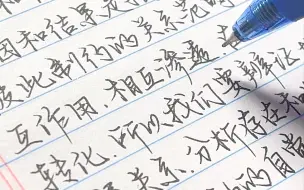 因和结果是
彼此制约的关系
互作用、相互渗透
转化.所以我们要辨证
关系.分析存在
的自